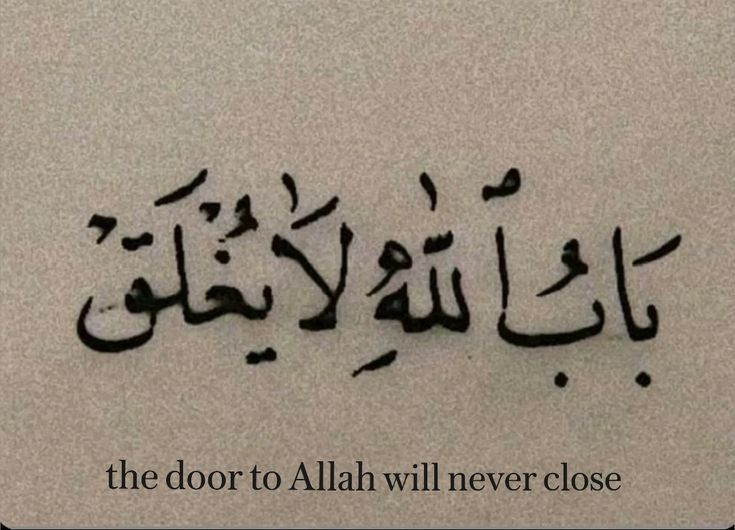 بَابُ ٱللّٰهِ لَا يُغْلَق
the door to Allah will never close